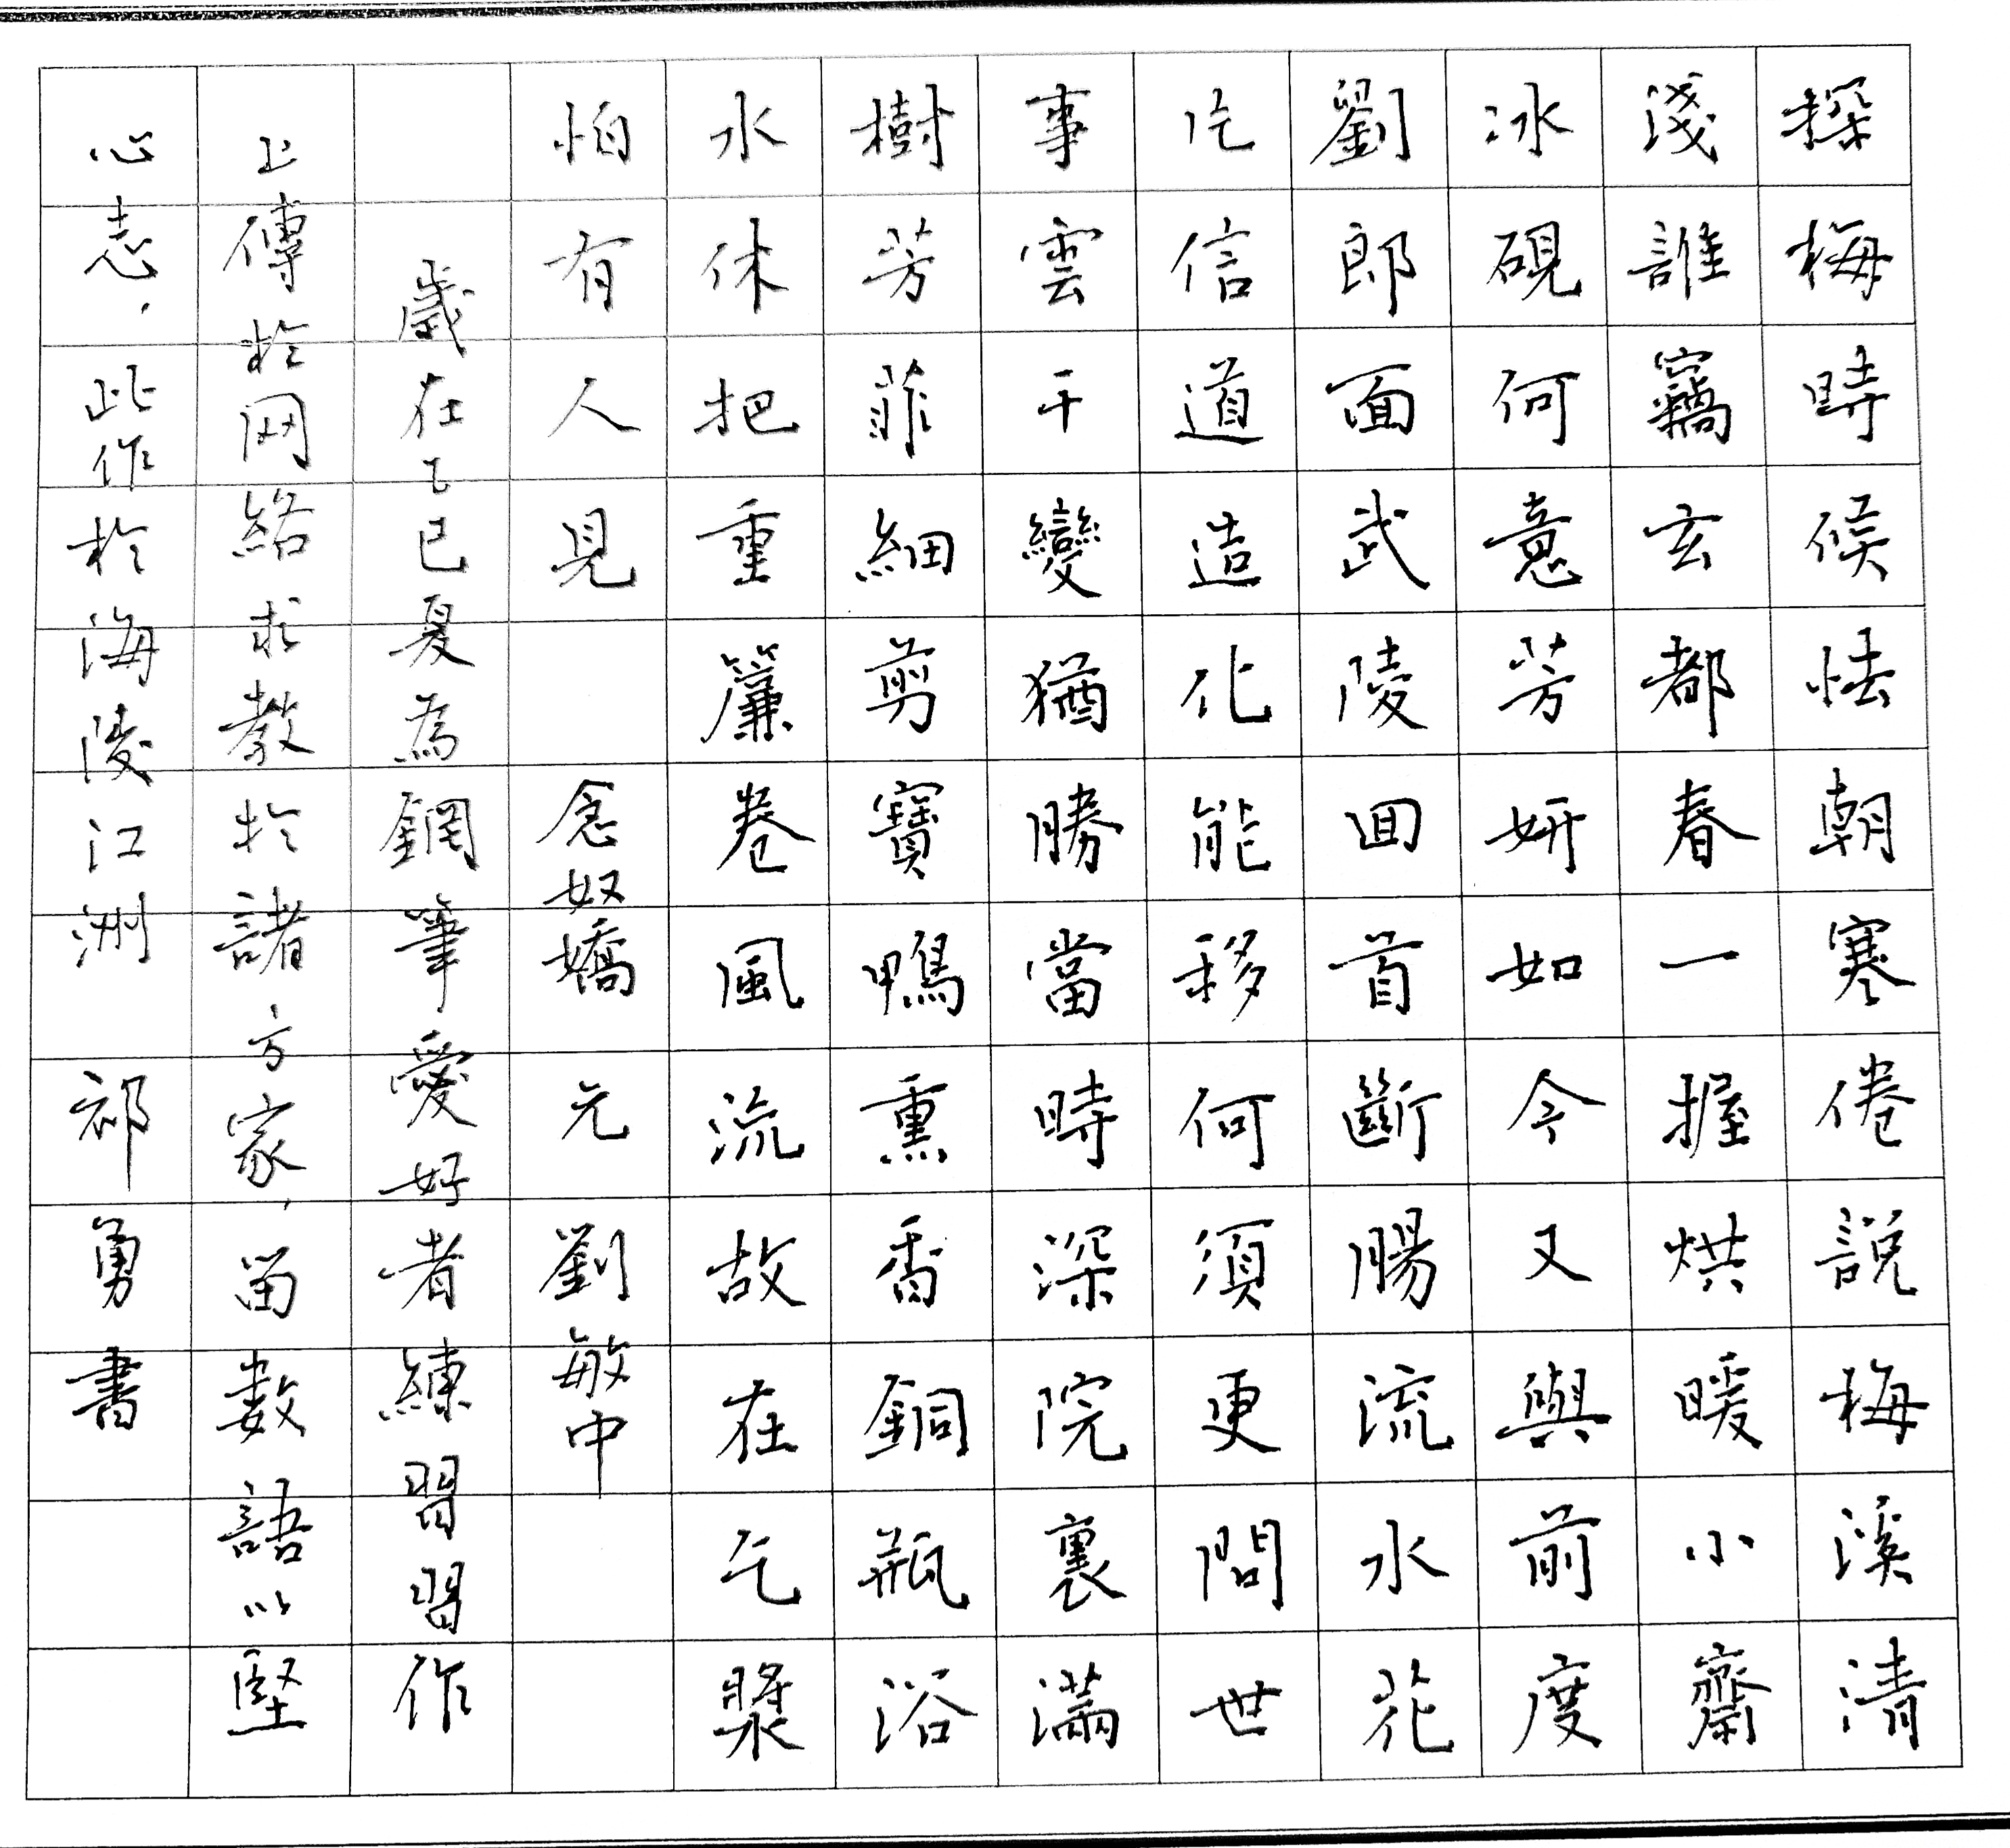 探梅時候怯朝寒倦說梅溪清
淺誰竊玄都春一握烘暖小齋
冰硯何意芳妍如今又與前度
劉郎面武陵回首斷腸流水花
片信道造化能移何須更問世
事雲千變猶勝當時深院裏滿
樹芳菲細剪寶鴨熏香銅瓶浴
水休把重簾卷風流故在乞漿
怕有人見 念奴嬌 元 劉敏中
歲在乙巳夏為鋼筆愛好者練習習作
上傳於网絡求教於諸方家，留数語以堅
心志，此作於海陵江洲 祁勇書